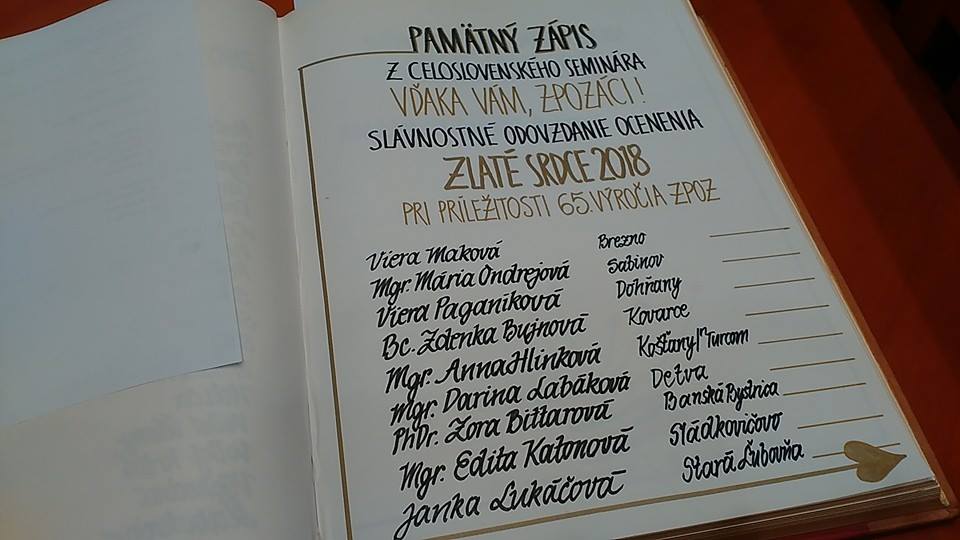 PAMÄTNÝ ZÁPIS
Z CELOSLOVENSKÉHO SEMINÁRA
VĎAKA VÁM, ZPOZÁCI!
SLÁVNOSTNÉ ODOVZDANIE OCENENIA
ZLATÉ SRDCE 2018
PRI PRÍLEŽITOSTI 65. VÝROČIA ZPOZ
Viera Maková Brezno
Mgr. Mária Ondrejová Sabinov
Viera Paganíková Dohňany
Bc. Zdenka Bujnová Kovarce
Mgr. Anna Hlinková Košťany/n Turcom
Mgr. Darina Labáková Detva
PhDr. Zora Bittarová Banská Bystrica
Mgr. Edita Katonová Sládkovičovo
Janka Lukáčová Stará Ľubovňa